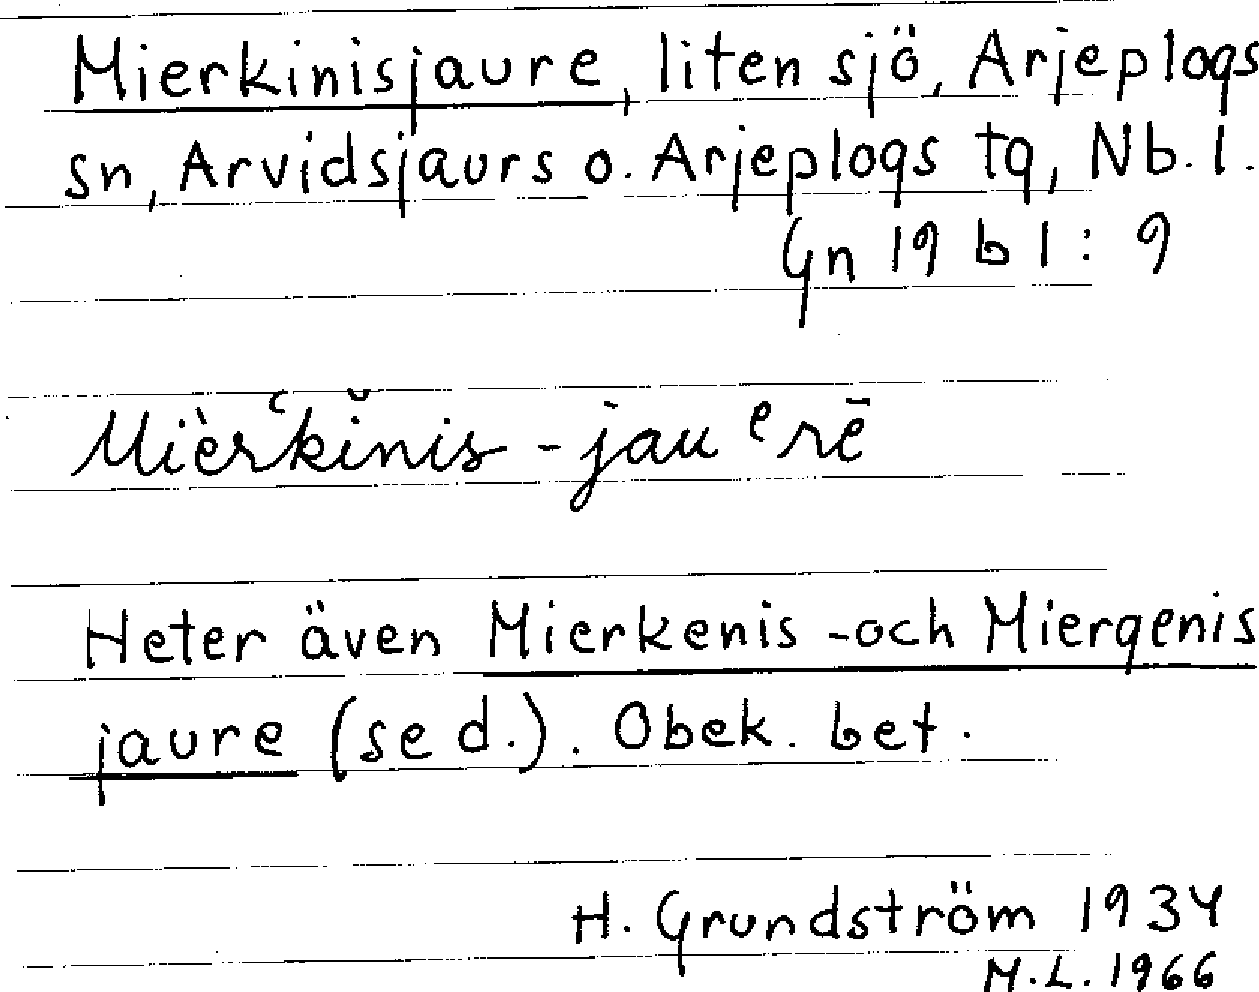 Mierkinisjaure, liten sjö, Arjeplogs
sn, Arvidsjaurs o. Arjeplogs tg, Nb. l.
Gn 19 b 1 : 9
Mi̯èrʽkĭnis - jauᵉrē
Heter även Mierkenis - och Miergenis
jaure (se d.). Obek. bet.
H. Grundström 1934
M.L. 1966